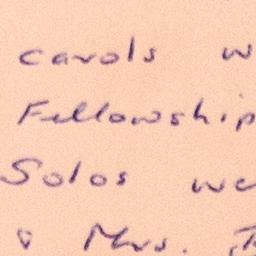 carols w
Fellowship
Solos we
Mrs.